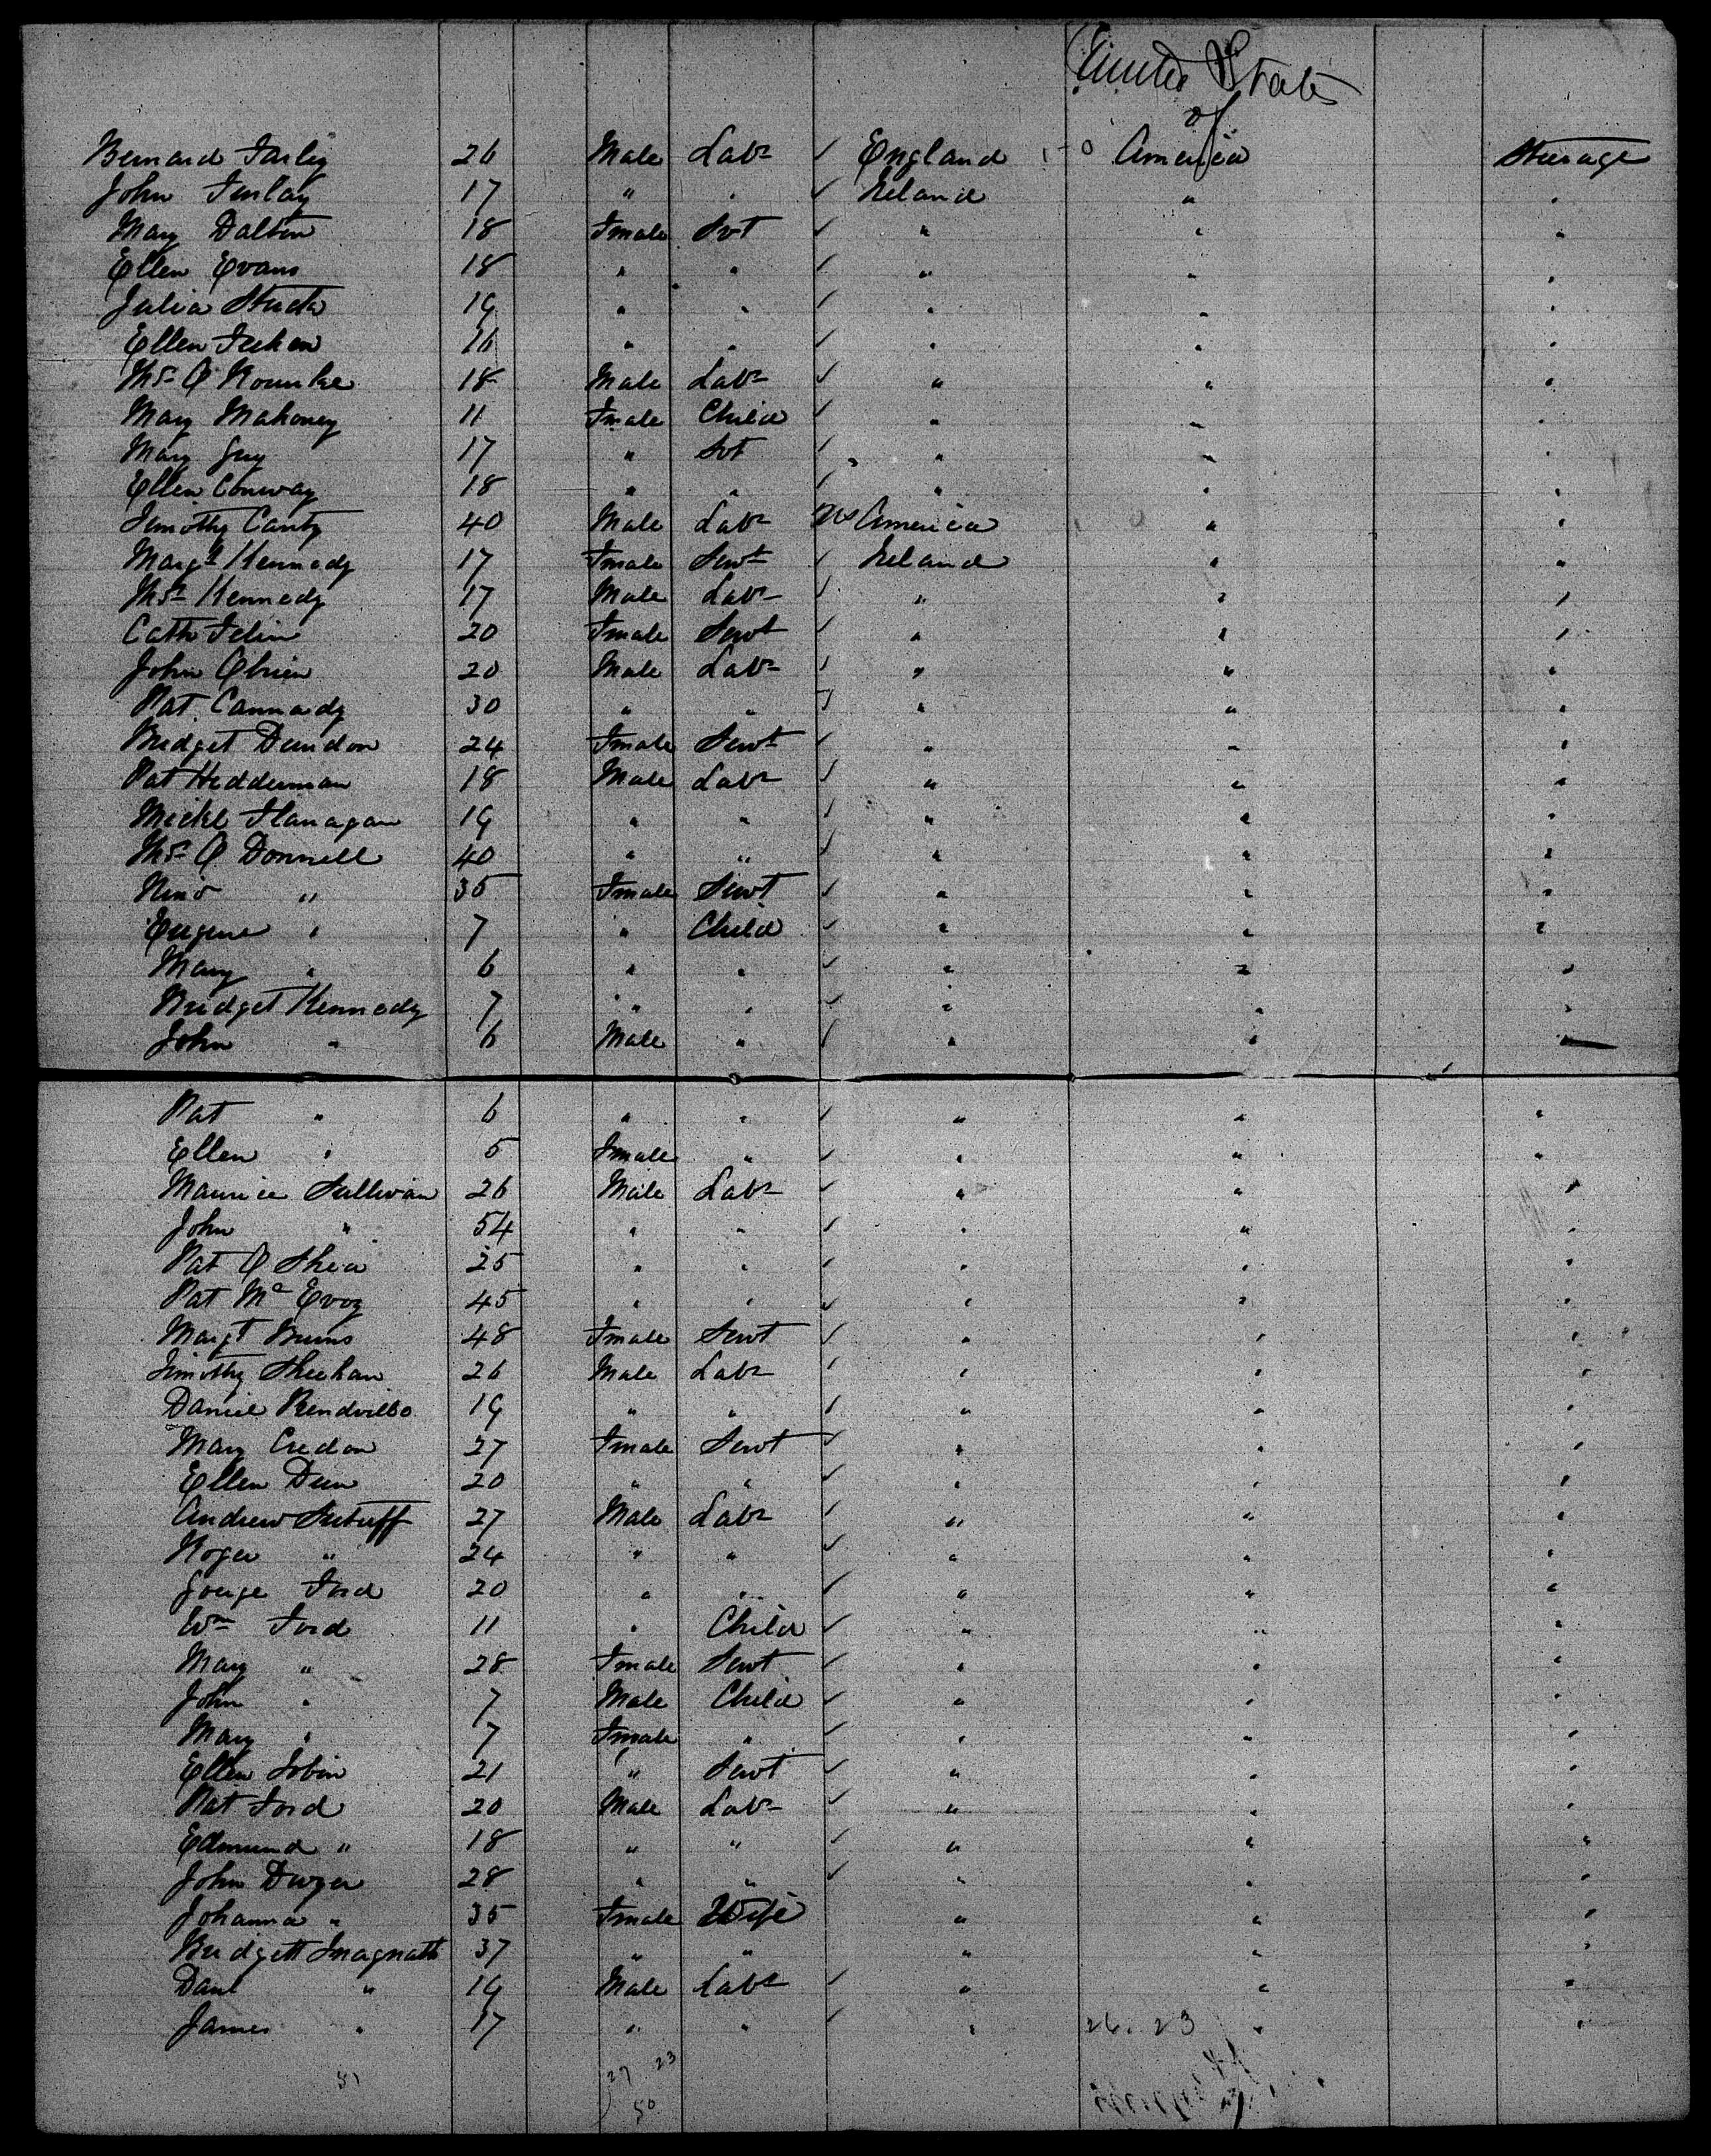 United States
of
Bernard Farley 26 Male Labr ✓ England to America Steerage
John Finlay 17 " " ✓ Ireland " "
Mary Dalton 18 Fmale Svt ✓ " " "
Ellen Evans 18 " " ✓ " " "
Julia 19 " " ✓ " " "
Ellen 16 " " ✓ " " "
Ths O Rourke 18 Male Labr ✓ " " "
Mary Mahoney 11 Fmale Child ✓ " " "
Mary Guy 17 " Svt ✓ " " "
Ellen Conway 18 " " ✓ " " "
Timothy Canty 40 Male Labr US America " "
Margt Kennedy 17 Fmale Servt ✓ Ireland " "
Ths Kennedy 17 Male Labr ✓ " " "
Cath 20 Fmale Servt ✓ " " "
John Obrien 20 Male Labr ✓ " " "
Pat Cannady 30 " " ✓ " " "
Bridget Dundon 24 Fmale Servt ✓ " " "
Pat Hedderman 18 Male Labr ✓ " " "
Michl Flanagan 19 " " ✓ " " "
Ths O Donnell 40 " " ✓ " " "
" 35 Fmale Servt ✓ " " "
Eugene " 7 " Child ✓ " " "
Mary " 6 " " ✓ " " "
Bridget Kennedy 7 " " ✓ " " "
John " 6 Male " ✓ " " "
Pat " 6 " " ✓ " " "
Ellen " 5 Fmale " ✓ " " "
Maurice Sullivan 26 Male Labr ✓ " " "
John " 54 " " ✓ " " "
Pat O Shea 25 " " ✓ " " "
Pat Mc Evoy 45 " " ✓ " " "
Margt Burns 48 Fmale Servt ✓ " " "
Timothy Sheehan 26 Male Labr ✓ " " "
Daniel 19 " " ✓ " " "
Mary Credon 27 Fmale Servt ✓ " " "
Ellen Dun 20 " " ✓ " " "
Andrew 27 Male Labr ✓ " " "
Roger " 24 " " ✓ " " "
George Ford 20 " " ✓ " " "
Wm Ford 11 " Child ✓ " " "
Mary " 28 Fmale Servt ✓ " " "
John " 7 Male Child ✓ " " "
Mary " 7 Fmale " ✓ " " "
Ellen Tobin 21 " Servt ✓ " " "
Pat Ford 20 Male Labr ✓ " " "
Edmund " 18 " " ✓ " " "
John Dwyer 28 " " ✓ " " "
Johanna " 35 Fmale Wife " " "
Bridgett Magnath 37 " " " " "
Danl " 19 Male Labr ✓ " " "
James " 17 " " ✓ " 26. 23 " "
51 27 23
50